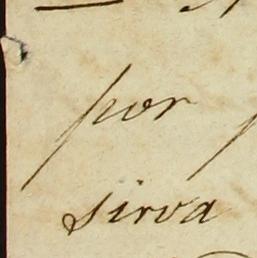 por
sirva